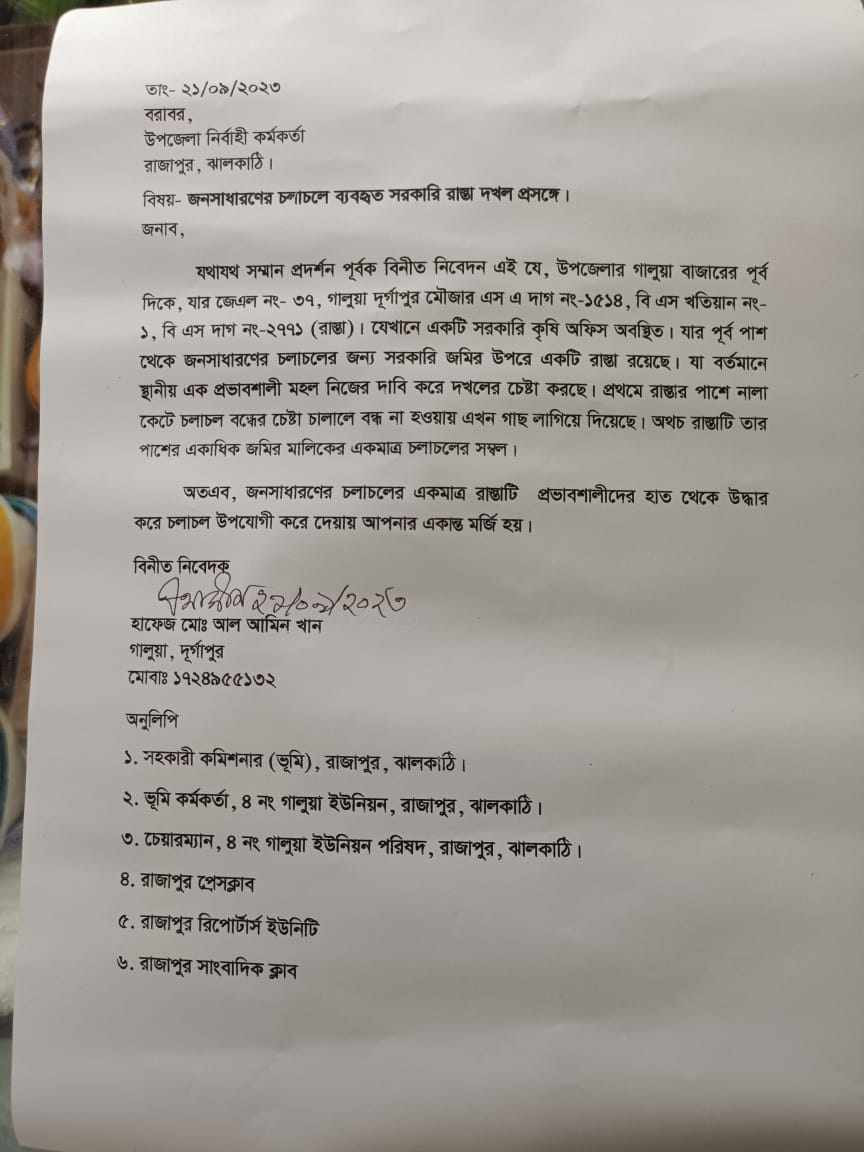 তাং- ২১/০৯/২০২৩
বরাবর,
উপজেলা নির্বাহী কর্মকর্তা
রাজাপুর, ঝালকাঠি।
বিষয়- জনসাধারণের চলাচলে ব্যবহৃত সরকারি রাস্তা দখল প্রসঙ্গে।
জনাব,
যথাযথ সম্মান প্রদর্শন পূর্বক বিনীত নিবেদন এই যে, উপজেলার গালুয়া বাজারের পূর্ব
দিকে, যার জেএল নং- ৩৭, গালুয়া দূর্গাপুর মৌজার এস এ দাগ নং-১৫১৪, বি এস খতিয়ান নং-
১, বি এস দাগ নং-২৭৭১ (রাস্তা)। যেখানে একটি সরকারি কৃষি অফিস অবস্থিত। যার পূর্ব পাশ
থেকে জনসাধারণের চলাচলের জন্য সরকারি জমির উপরে একটি রাস্তা রয়েছে। যা বর্তমানে
স্থানীয় এক প্রভাবশালী মহল নিজের দাবি করে দখলের চেষ্টা করছে। প্রথমে রাস্তার পাশে নালা
কেটে চলাচল বন্ধের চেষ্টা চালালে বন্ধ না হওয়ায় এখন গাছ লাগিয়ে দিয়েছে। অথচ রাস্তাটি তার
পাশের একাধিক জমির মালিকের একমাত্র চলাচলের সম্বল।
অতএব, জনসাধারণের চলাচলের একমাত্র রাস্তাটি প্রভাবশালীদের হাত থেকে উদ্ধার
করে চলাচল উপযোগী করে দেয়ায় আপনার একান্ত মর্জি হয়।
বিনীত নিবেদক
২১/০৯/২০২৩
হাফেজ মোঃ আল আমিন খান
গালুয়া, দূর্গাপুর
মোবাঃ ১৭২৪৯৫৫১৩২
অনুলিপি
১. সহকারী কমিশনার (ভূমি), রাজাপুর, ঝালকাঠি।
২. ভূমি কর্মকর্তা, ৪ নং গালুয়া ইউনিয়ন, রাজাপুর, ঝালকাঠি।
৩. চেয়ারম্যান, ৪ নং গালুয়া ইউনিয়ন পরিষদ, রাজাপুর, ঝালকাঠি।
৪. রাজাপুর প্রেসক্লাব
৫. রাজাপুর রিপোর্টার্স ইউনিটি
৬. রাজাপুর সাংবাদিক ক্লাব